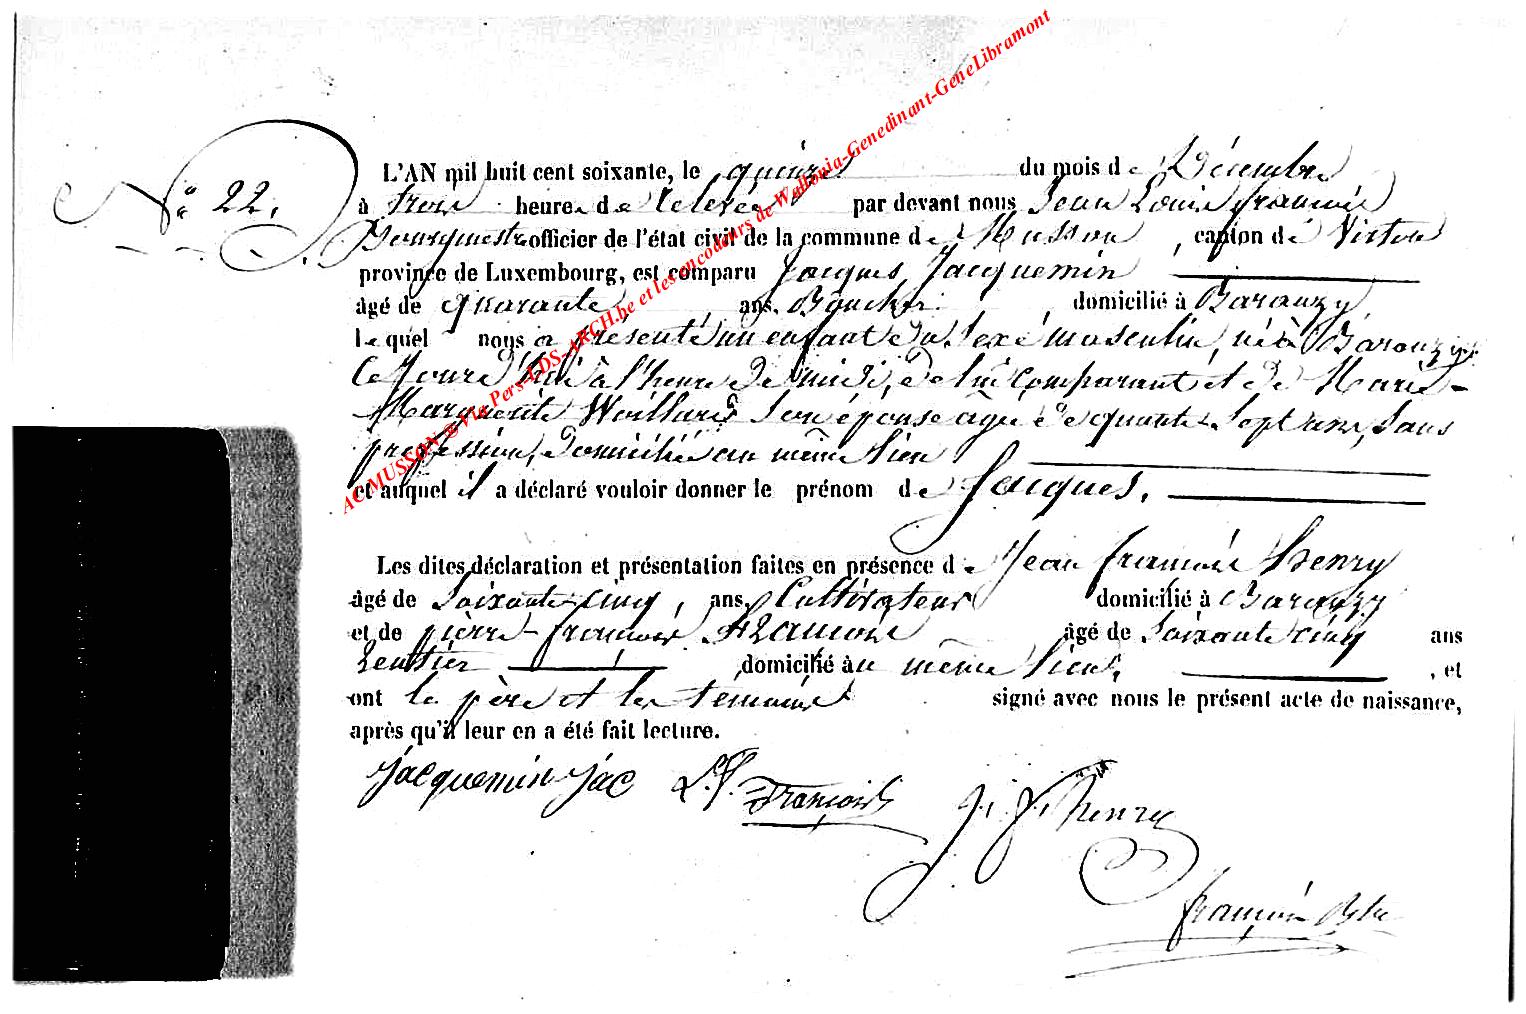 AC MUSSON @ Via Pers-EDS-ARCH.be et les encodeurs de Wallonia-Genedinant-GeneLibramont
N° 22.
L'AN mil huit cent soixante, le quinze du mois de Décembre
à trois heures de relevée par devant nous Jean Louis françois
Bourgmestre officier de l'état civil de la commune de Musson, canton de Virton
province de Luxembourg, est comparu Jacques Jacquemin
âgé de quarante, ans, domicilié à Baranzy
lequel nous a présenté un enfant du sexe masculin, né à Baranzy
ce jourd'hui à l'heure de midi, de lui comparant et de Marie-
Marguerite son épouse âgée de sept ans, sans
profession, domiciliée au même lieu
et auquel il a déclaré vouloir donner le prénom de Jacques.
Les dites déclaration et présentation faites en présence de Jean françois Henry
âgé de Soixante-cinq, ans, Cultivateur domicilié à Baranzy
et de pierre-françois françois âgé de Soixante cinq ans
Rentier, domicilié au même lieu, et
ont le père et les témoins signé avec nous le présent acte de naissance,
après qu'il leur en a été fait lecture.
Jacquemin Jac françois J. f. henry
françois